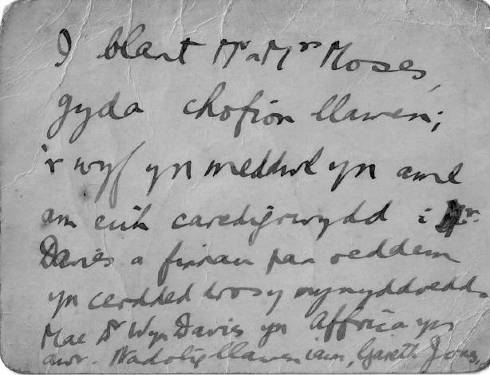 I blant Mr a Mrs Moses,
gyda chofion llawen;
'r wyf yn meddwl yn aml
am eich caredigrwydd i Mr.
Davies a finnau pan oeddem
yn cerdded dros y mynyddoedd.
Mae Dr Wyn Davies yn Affrica yn
awr. Nadolig llawen iawn, Gareth Jones,